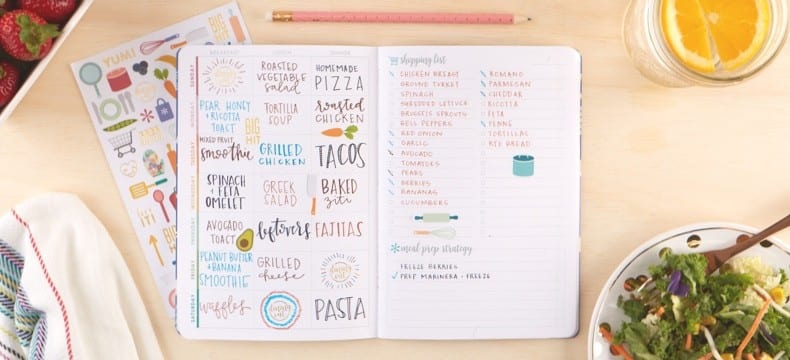 YUM!
BIG
HIT
BREAKFAST
LUNCH
DINNER
SUNDAY
dining
out
ROASTED
VEGETABLE
salad
HOMEMADE
PIZZA
MONDAY
PEAR HONEY
& RICOTTA
TOAST
BIG
HIT
TORTILLA
SOUP
roasted
CHICKEN
TUESDAY
MIXED FRUIT
smoothie
GRILLED
CHICKEN
TACOS
WEDNESDAY
SPINACH
+ FETA
OMELET
GREEK
SALAD
BAKED
ziti
THURSDAY
AVOCADO
TOAST
leftovers
FAJITAS
FRIDAY
PEANUT BUTTER
& BANANA
SMOOTHIE
GRILLED
cheese
dining
out
SATURDAY
waffles
dining
out
PASTA
shopping list
CHICKEN BREAST
GROUND TURKEY
SPINACH
SHREDDED LETTUCE
BRUSSELS SPROUTS
BELL PEPPERS
RED ONION
GARLIC
AVOCADO
TOMATOES
PEARS
BERRIES
BANANAS
CUCUMBERS
ROMANO
PARMESAN
CHEDDAR
RICOTTA
FETA
PENNE
TORTILLAS
RYE BREAD
meal prep strategy
FREEZE BERRIES
PREP MARINERA + FREEZE